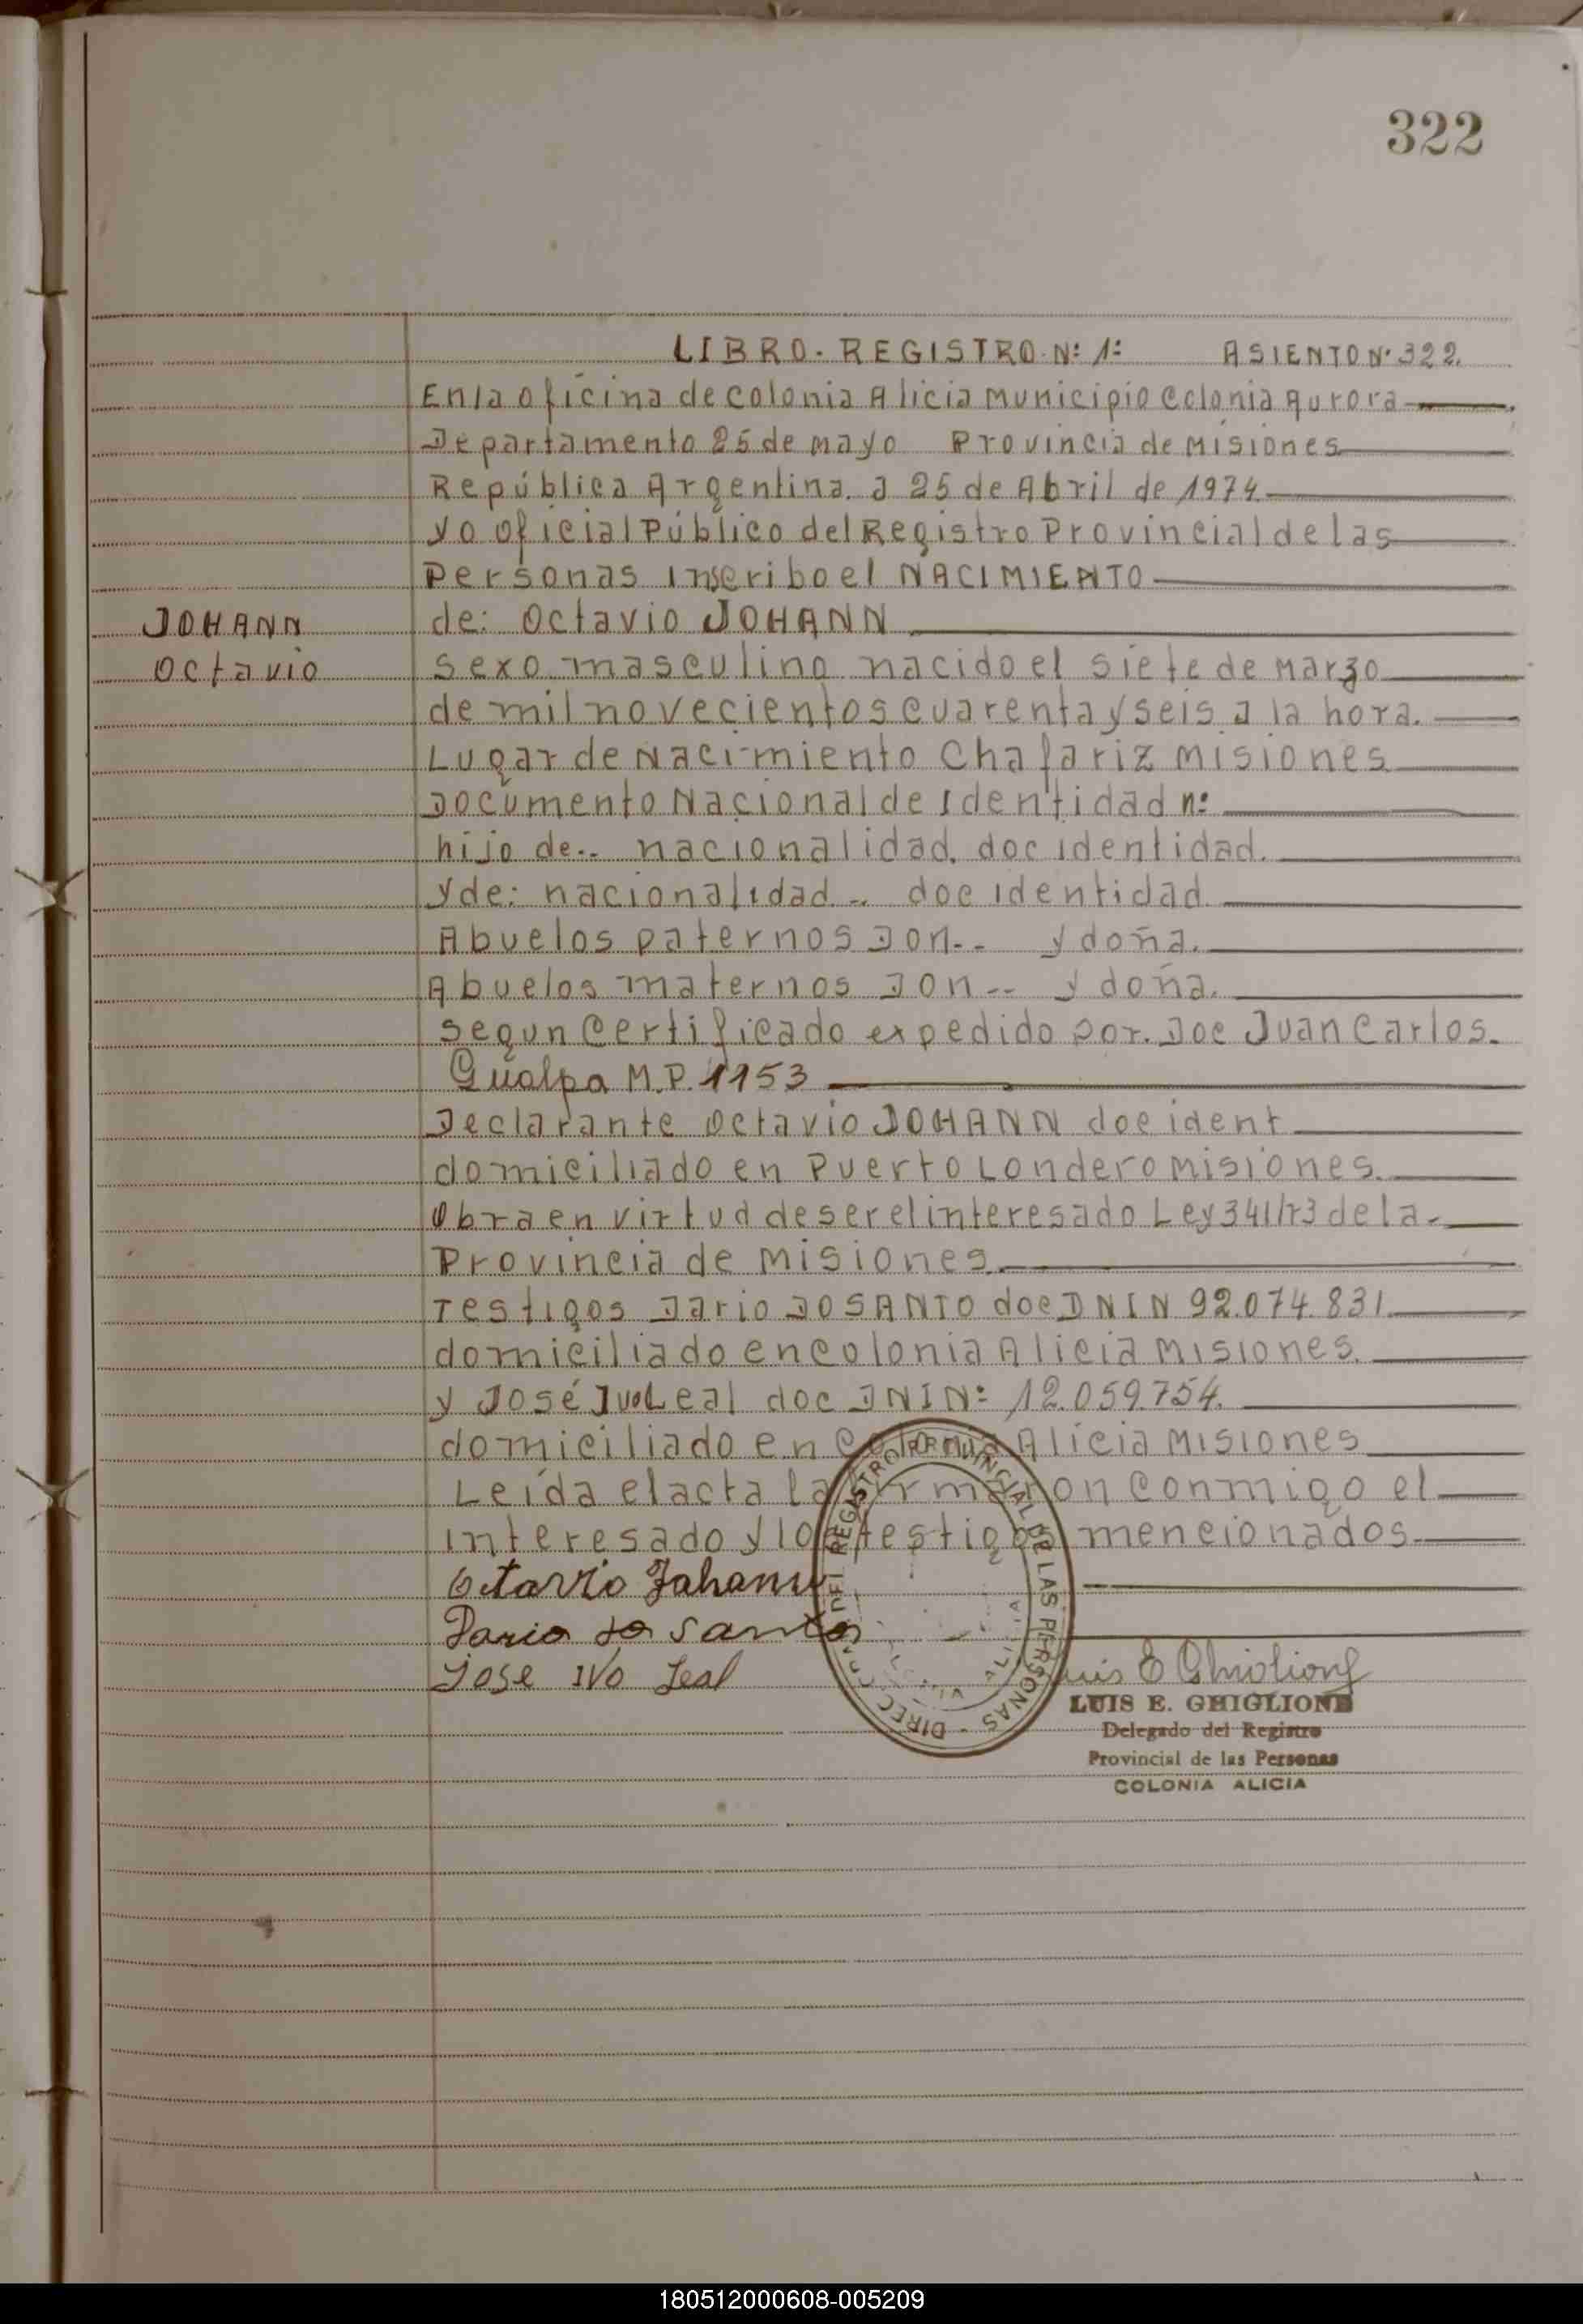 322
LIBRO. REGISTRO. Nº 1º ASIENTO Nº 322.
En la oficina de colonia Alicia Municipio Colonia Aurora
Departamento 25 de mayo Provincia de Misiones
República Argentina. a 25 de Abril de 1974
yo oficial Público del Registro Provincial de las
Personas Inscribo el NACIMIENTO
JOHANN de: Octavio JOHANN
Octavio sexo masculino nacido el siete de Marzo
de mil novecientos cuarenta y seis a la hora.
Lugar de Nacimiento Chafariz Misiones
Documento Nacional de Identidad nº
hijo de.. nacionalidad. doc identidad.
y de: nacionalidad.. doc identidad.
Abuelos paternos Don.. y doña.
Abuelos maternos Don.. y doña.
Segun Certificado expedido por. Doc Juan Carlos.
Gualpa M.P. 1153
Declarante Octavio JOHANN doc ident
domiciliado en Puerto Londero Misiones.
Obra en virtud de ser el interesado Ley 341/73 de la.
Provincia de Misiones.
Testigos Dario DOSANTO doc DNI N 92.074.831.
domiciliado en colonia Alicia Misiones.
y José Ivo Leal doc DNI Nº 12.059.754.
domiciliado en Colonia Alicia Misiones
Leída el acta la firmaron conmigo el
interesado y los testigos mencionados
Octavio Johann
Dario do Santos
Jose Ivo Leal
Luis E Ghiglione
LUIS E. GHIGLIONE
Delegado del Registro
Provincial de las Personas
COLONIA ALICIA
DEL REGISTRO PROVINCIAL DE LAS PERSONAS - DIREC
180512000608-005209